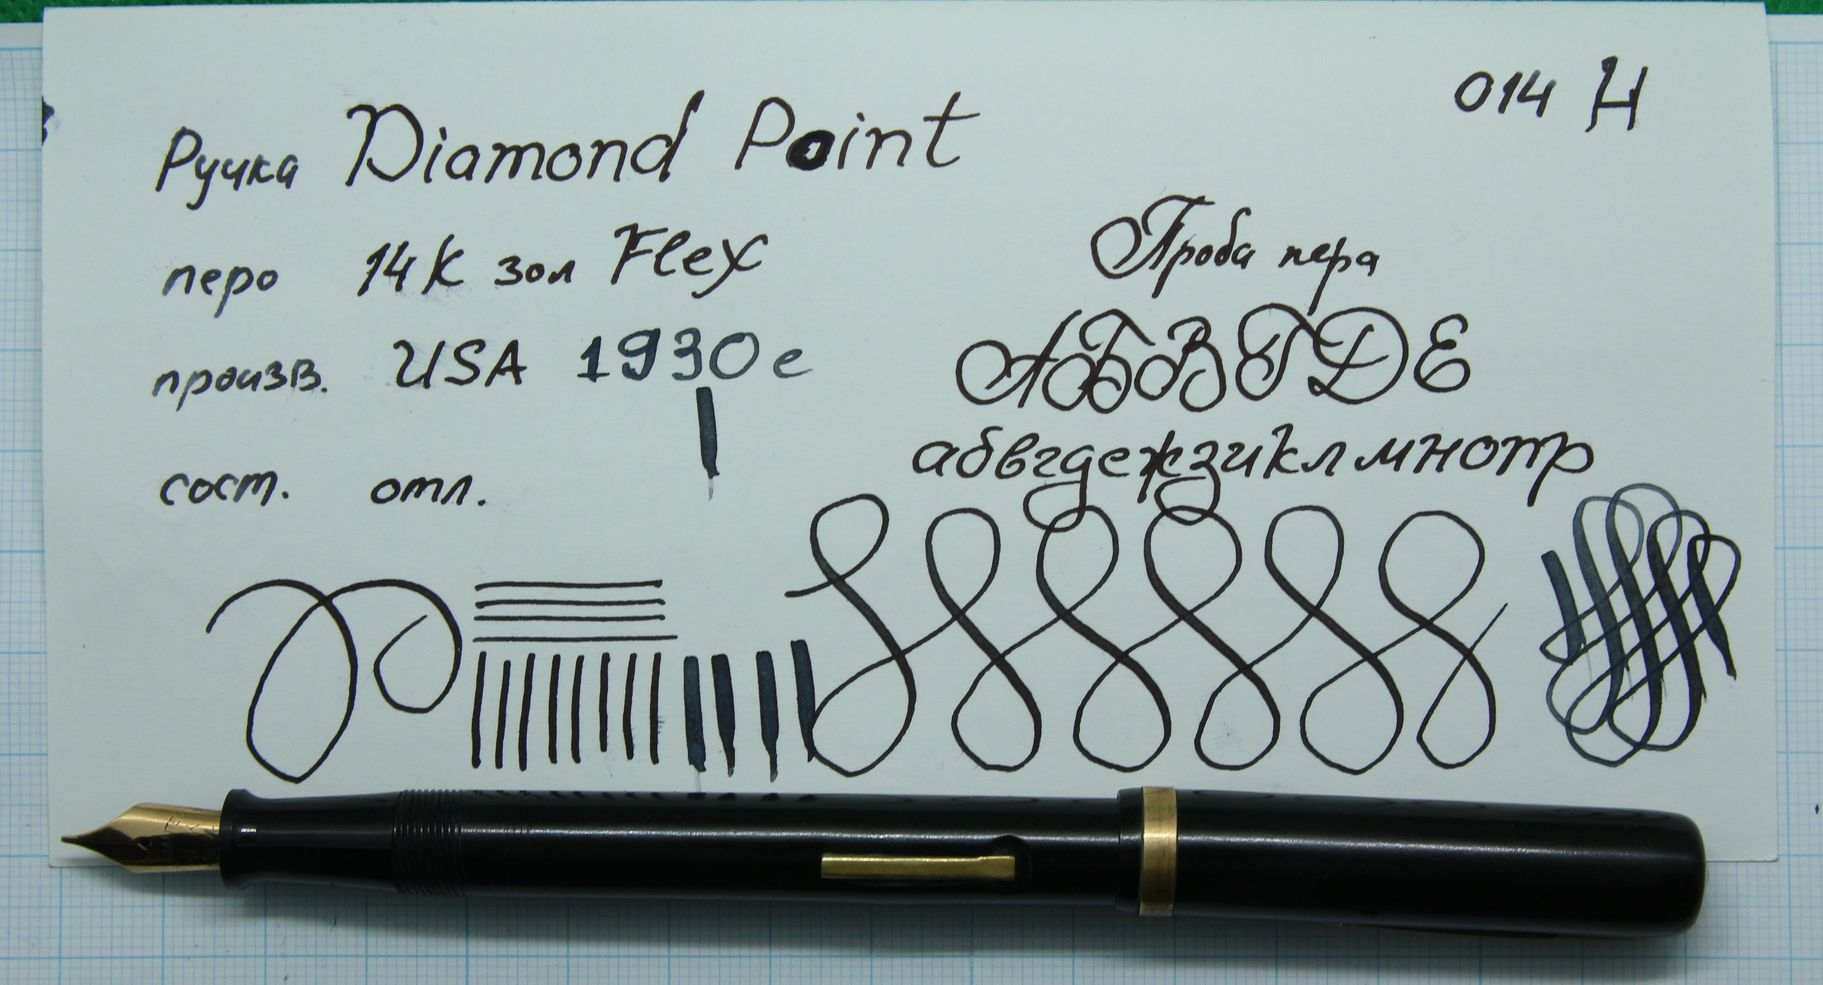 014 Н
Ручка Diamond Point
перо 14К зол Flex
произв. USA 1930е
сост. отл.
Проба пера
АБВГДЕ
абвгдежзиклмнопр